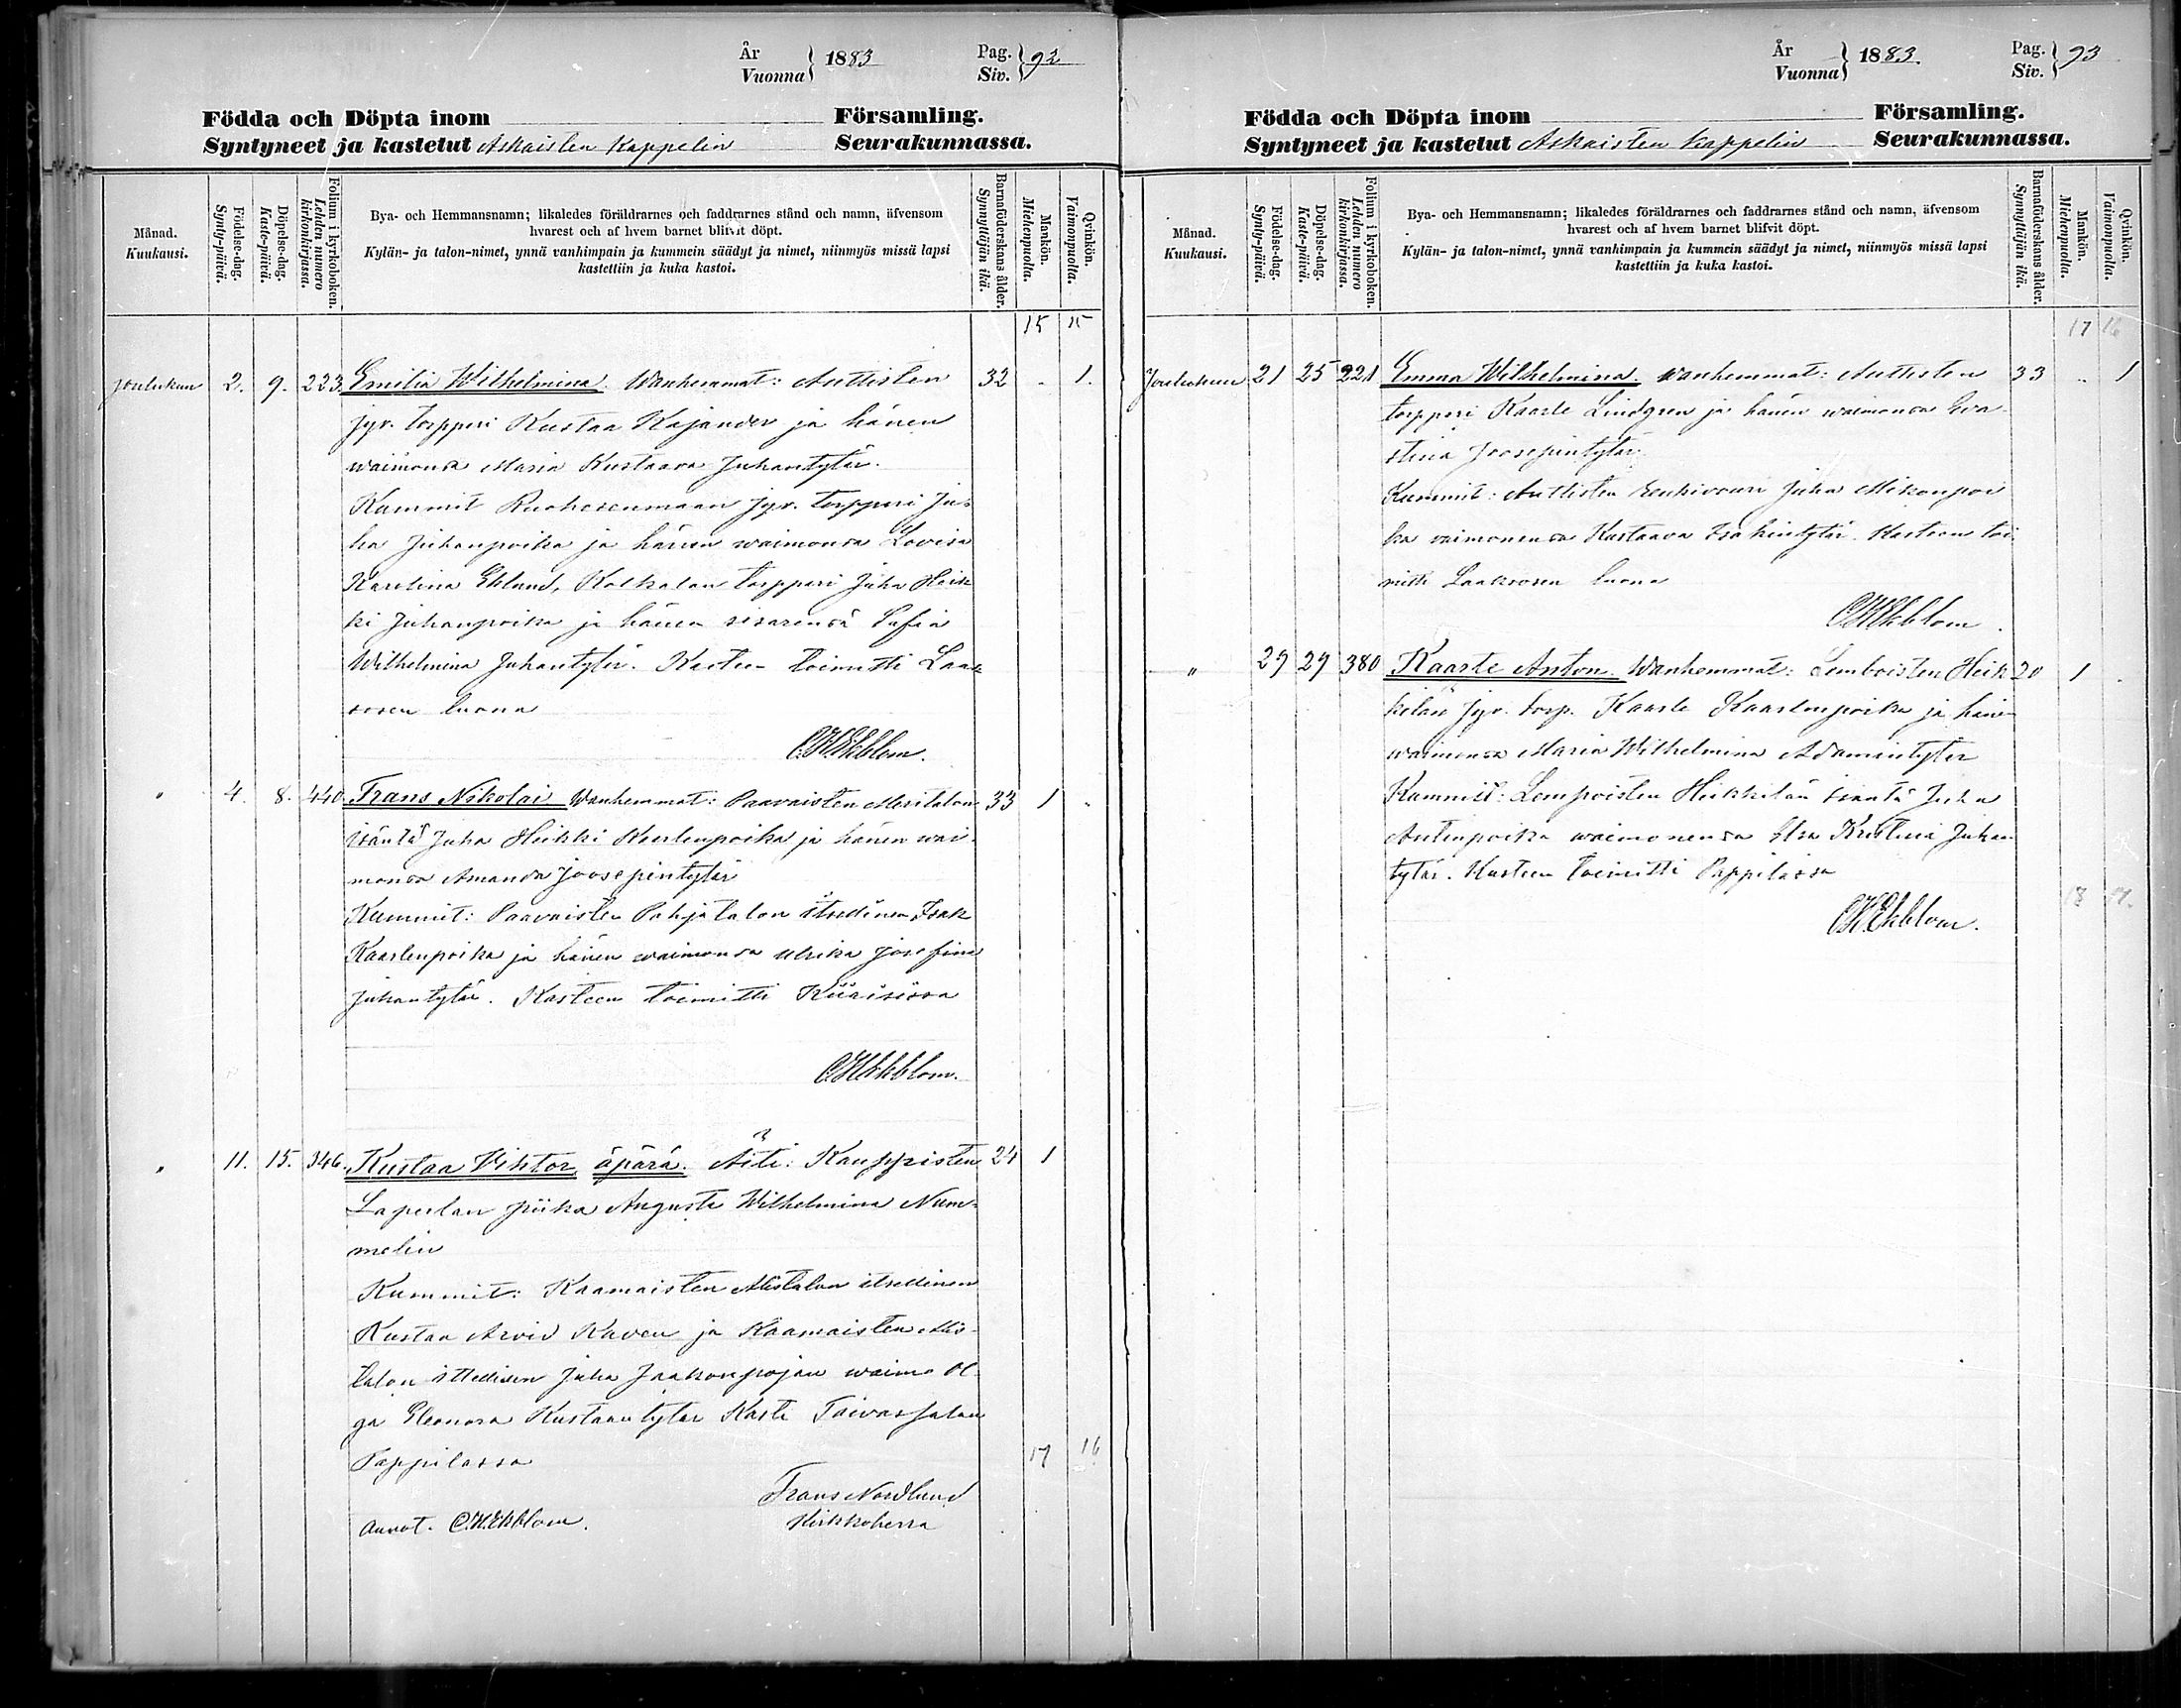 År Vuonna } 1883 Pag. Siv. } 92
Födda och Döpta inom Församling.
Syntyneet ja kastetut Askaisten Kappelin Seurakunnassa.
Månad. Kuukausi.
Födelse-dag. Synty-päivä.
Döpelse-dag. Kaste-päivä.
Folium i kyrkoboken. Lehden numero kirkonkirjassa.
Bya- och Hemmansnamn; likaledes föräldrarnes och faddrarnes stånd och namn, äfvensom
hvarest och af hvem barnet blifvit döpt.
Kylän- ja talon-nimet, ynnä vanhimpain ja kummein säädyt ja nimet, niinmyös missä lapsi
kastettiin ja kuka kastoi.
Barnaföderskans ålder. Synnyttäjän ikä.
Mankön. Miehenpuolta.
Qvinkön. Vaimonpuolta.
15 15
Joulukun 2. 9. 223. Emilia Wilhelmina. Wanhemmat: Auttisten 32 - 1.
jyv. torppari Kustaa Kajander ja hänen
waimonsa Maria Kustaava Juhantytär.
Kummit Ruohosenmaan jyv. torppari Ju-
ha Juhanpoika ja hänen waimonsa Lovisa
Karolina Eklund, Kolkalan torppari Juha Heik
ki Juhanpoika ja hänen sisarensa Sofia
Wilhelmina Juhantytär. Kasteen toimitti Laak-
sosen luona
C.H.Ekblom.
" 4. 8. 440. Frans Nikolai Wanhemmat: Paavaisten Meritalon 33 1 -
isäntä Juha Heikki Kaarlenpoika ja hänen wai-
monsa Amanda Joosepintytär
Kummit: Paavaisten Pohjatalon itsedinen Isak
Kaarlenpoika ja hänen waimonsa Ulrika Josefina
Juhantytär. Kasteen toimitti
C.H.Ekblom.
" 11. 15. 346. Kustaa Viktor äpärä. Äiti: Kauppisten 24 1
piika Augusta Wilhelmina Num-
melin
Kummit: Kaamaisten Alistalon itsedinen
Kustaa Arvid Kaven ja Kaamaisten Alis-
talon ittedisen Juha Jaakonpojan waimo Ol-
ga Eleonora Kustaantytär Kaste Taivassalon
Pappilassa 17 16
Frans Nordlund
Annot. C.H.Ekblom. Kirkkoherra
År Vuonna } 1883. Pag. Siv. } 93
Födda och Döpta inom Församling.
Syntyneet ja kastetut Askaisten kappelin Seurakunnassa.
Månad. Kuukausi.
Födelse-dag. Synty-päivä.
Döpelse-dag. Kaste-päivä.
Folium i kyrkoboken. Lehden numero kirkonkirjassa.
Bya- och Hemmansnamn; likaledes föräldrarnes och faddrarnes stånd och namn, äfvensom
hvarest och af hvem barnet blifvit döpt.
Kylän- ja talon-nimet, ynnä vanhimpain ja kummein säädyt ja nimet, niinmyös missä lapsi
kastettiin ja kuka kastoi.
Barnaföderskans ålder. Synnyttäjän ikä.
Mankön. Miehenpuolta.
Qvinkön. Vaimonpuolta.
17 16
Joulukuun 21 25 221 Emma Wilhelmina. Wanhemmat: Auttisten 33 - 1
torppari Kaarle Lindgren ja hänen waimonsa Eva
Stina Joosepintytär.
Kummit: Auttisten Juha Mikonpoi
ka vaimonensa Kustaava Isakintytär. Kasteen toi
mitti Laaksosen luona
C.H.Ekblom.
" 29 29 380 Kaarle Anton. Wanhemmat: Lemboisten Heik 20 1 .
kilän jyv. torp. Kaarle Kaarlenpoika ja hänen
waimonsa Maria Wilhelmina Adamintytär
Kummit: Lempoisten Heikkilän isäntä Juha
Antinpoika waimonensa Elsa Kristina Juhan
tytär. Kasteen toimitti Pappilassa
18 17.
C.H.Ekblom.